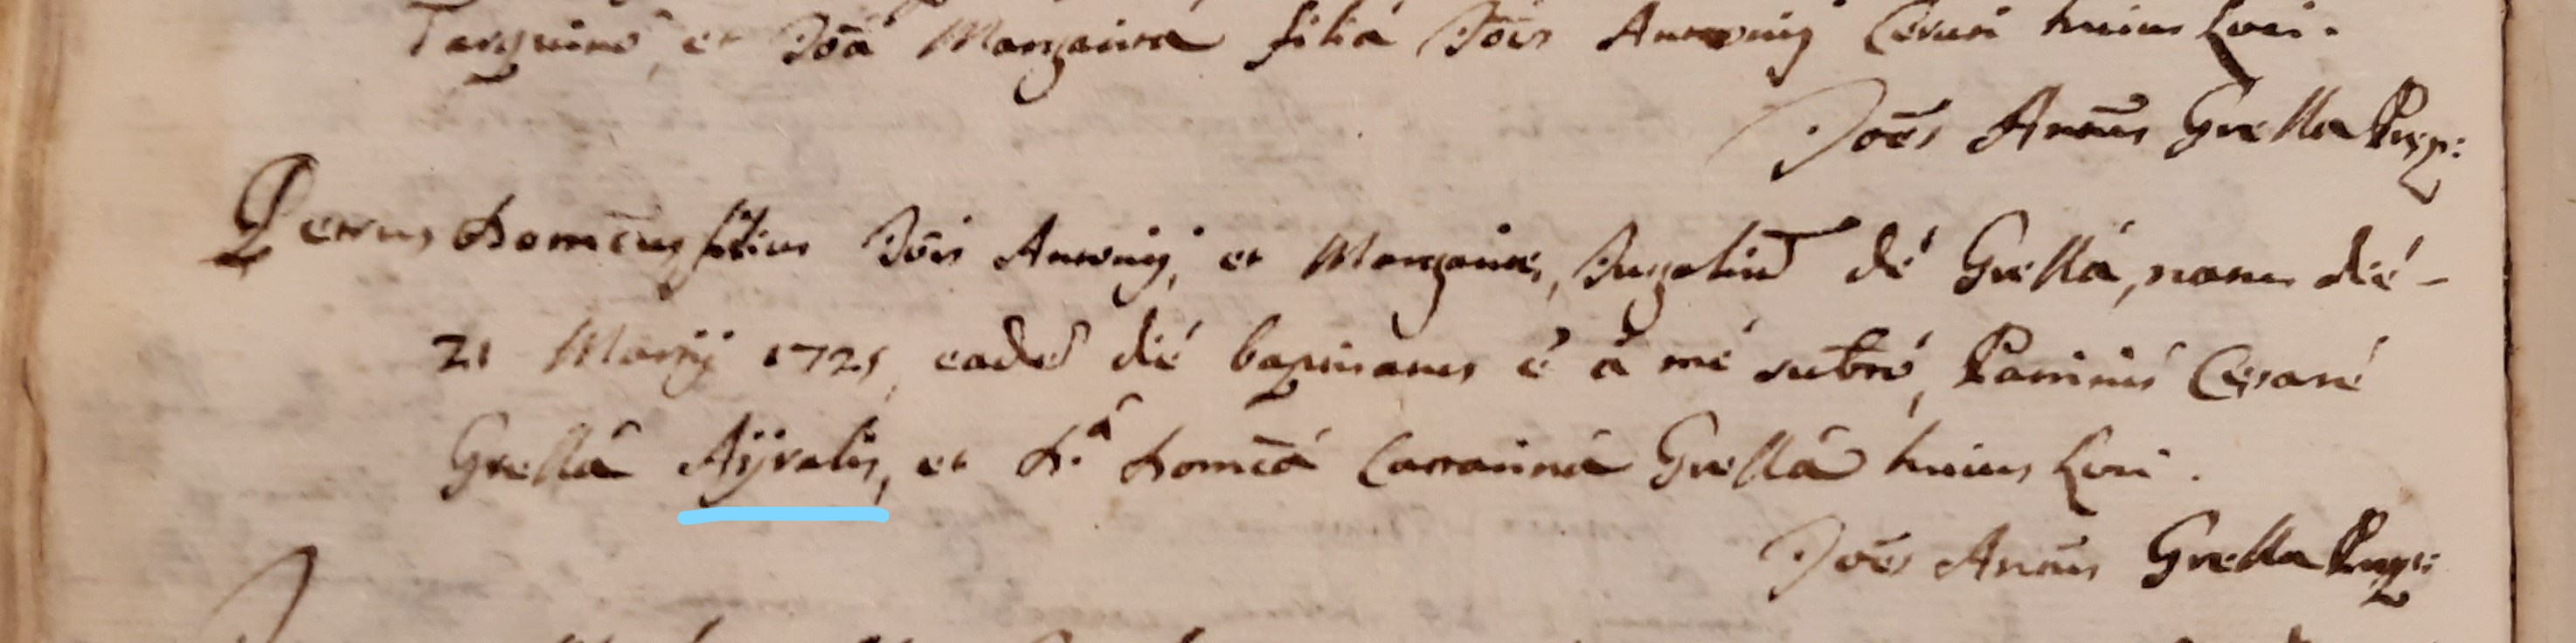 et Joa Margarita filia Jois Antonij Cesari huius Loci.
Joes Antus Grella Prep:
Petrus Domcus filius Jois Antonij, et Margaritæ, Jugaliu de Grella, natus die -
21 Martij 1725, eade die baptizatus è à me subto, Patrinis Cesare
Grella Ayralis, et D.ª Domca Cattarina Grella huius Loci.
Joes Antus Grella Prep: